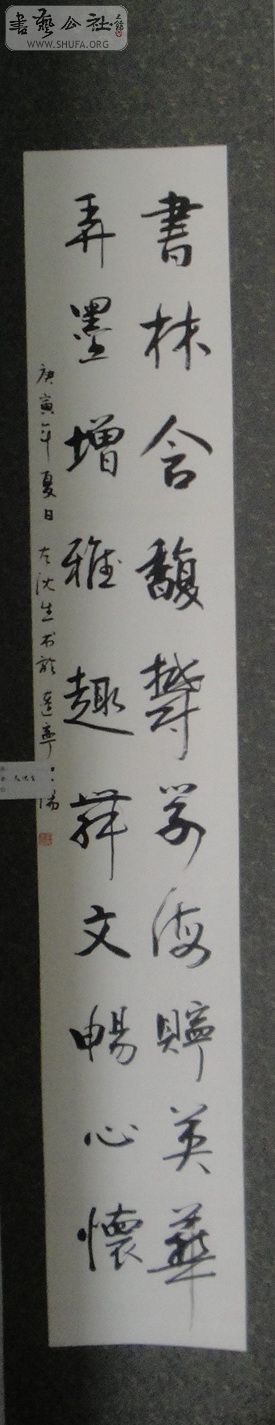 書藝公社
WWW.SHUFA.ORG
書林含馥郁学海赔英華
弄墨增雅趣舞文暢心懷
庚寅年夏日左沈生书於遼寧